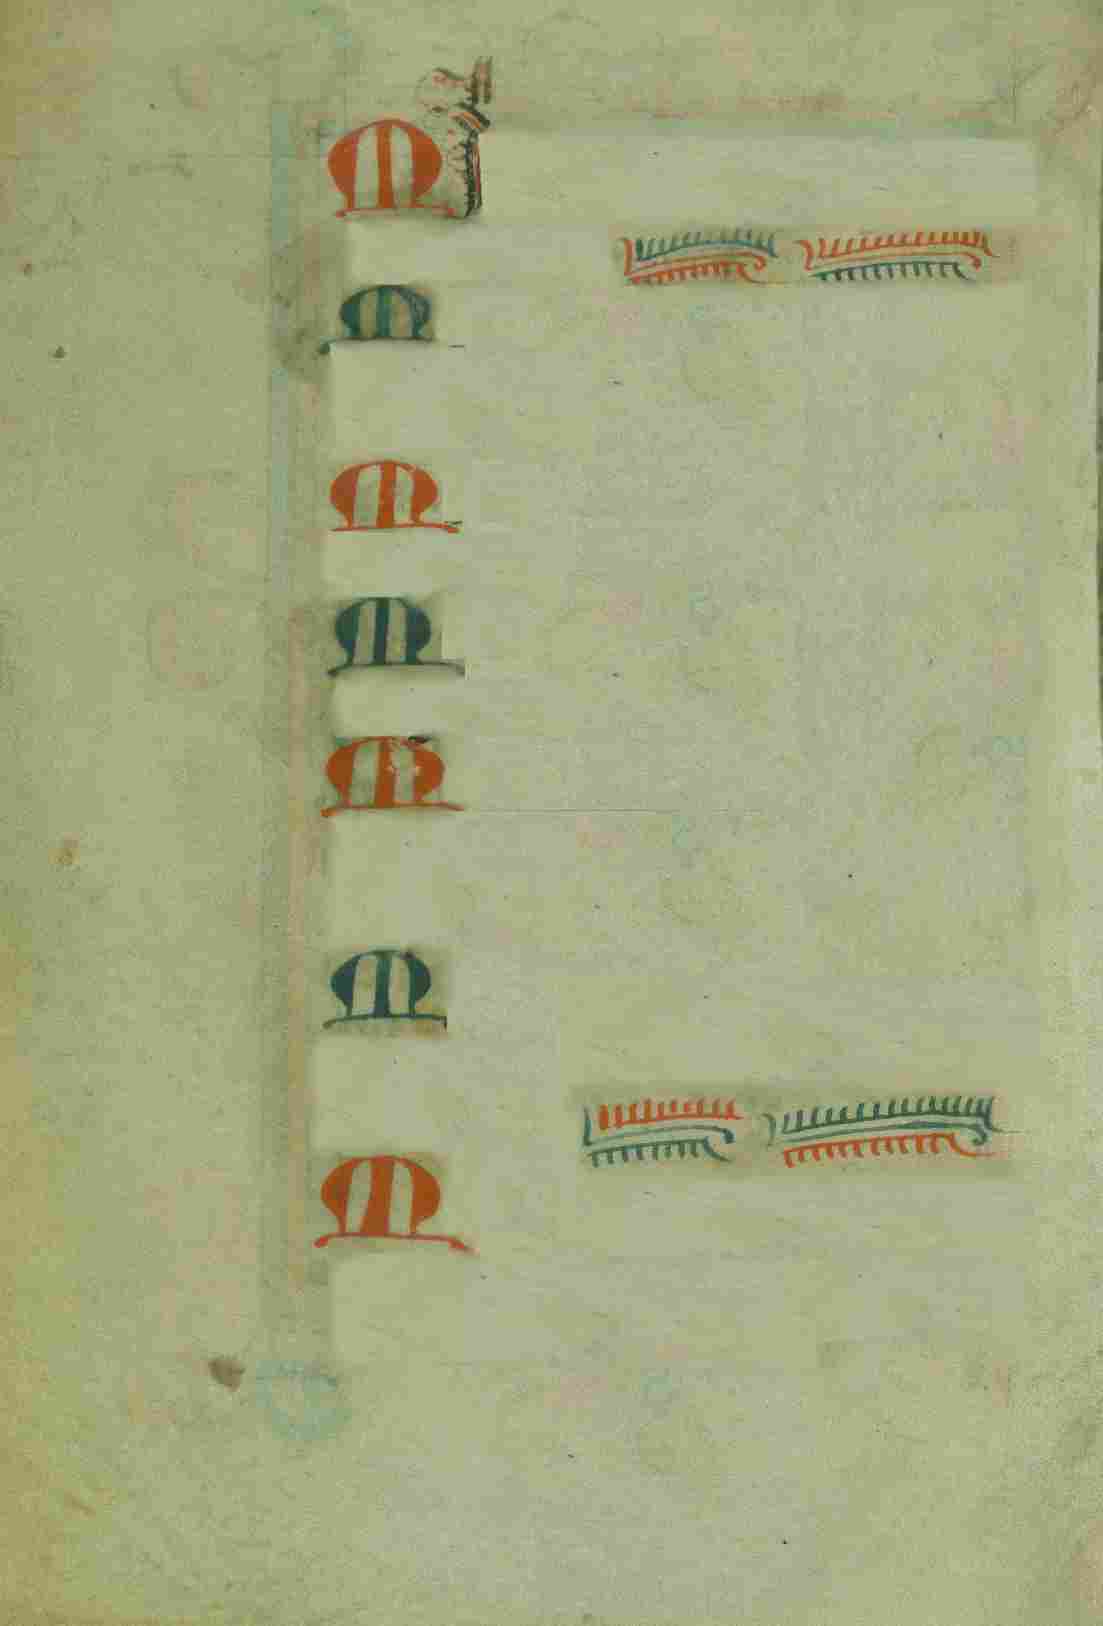 M
M
M
M
M
M
M